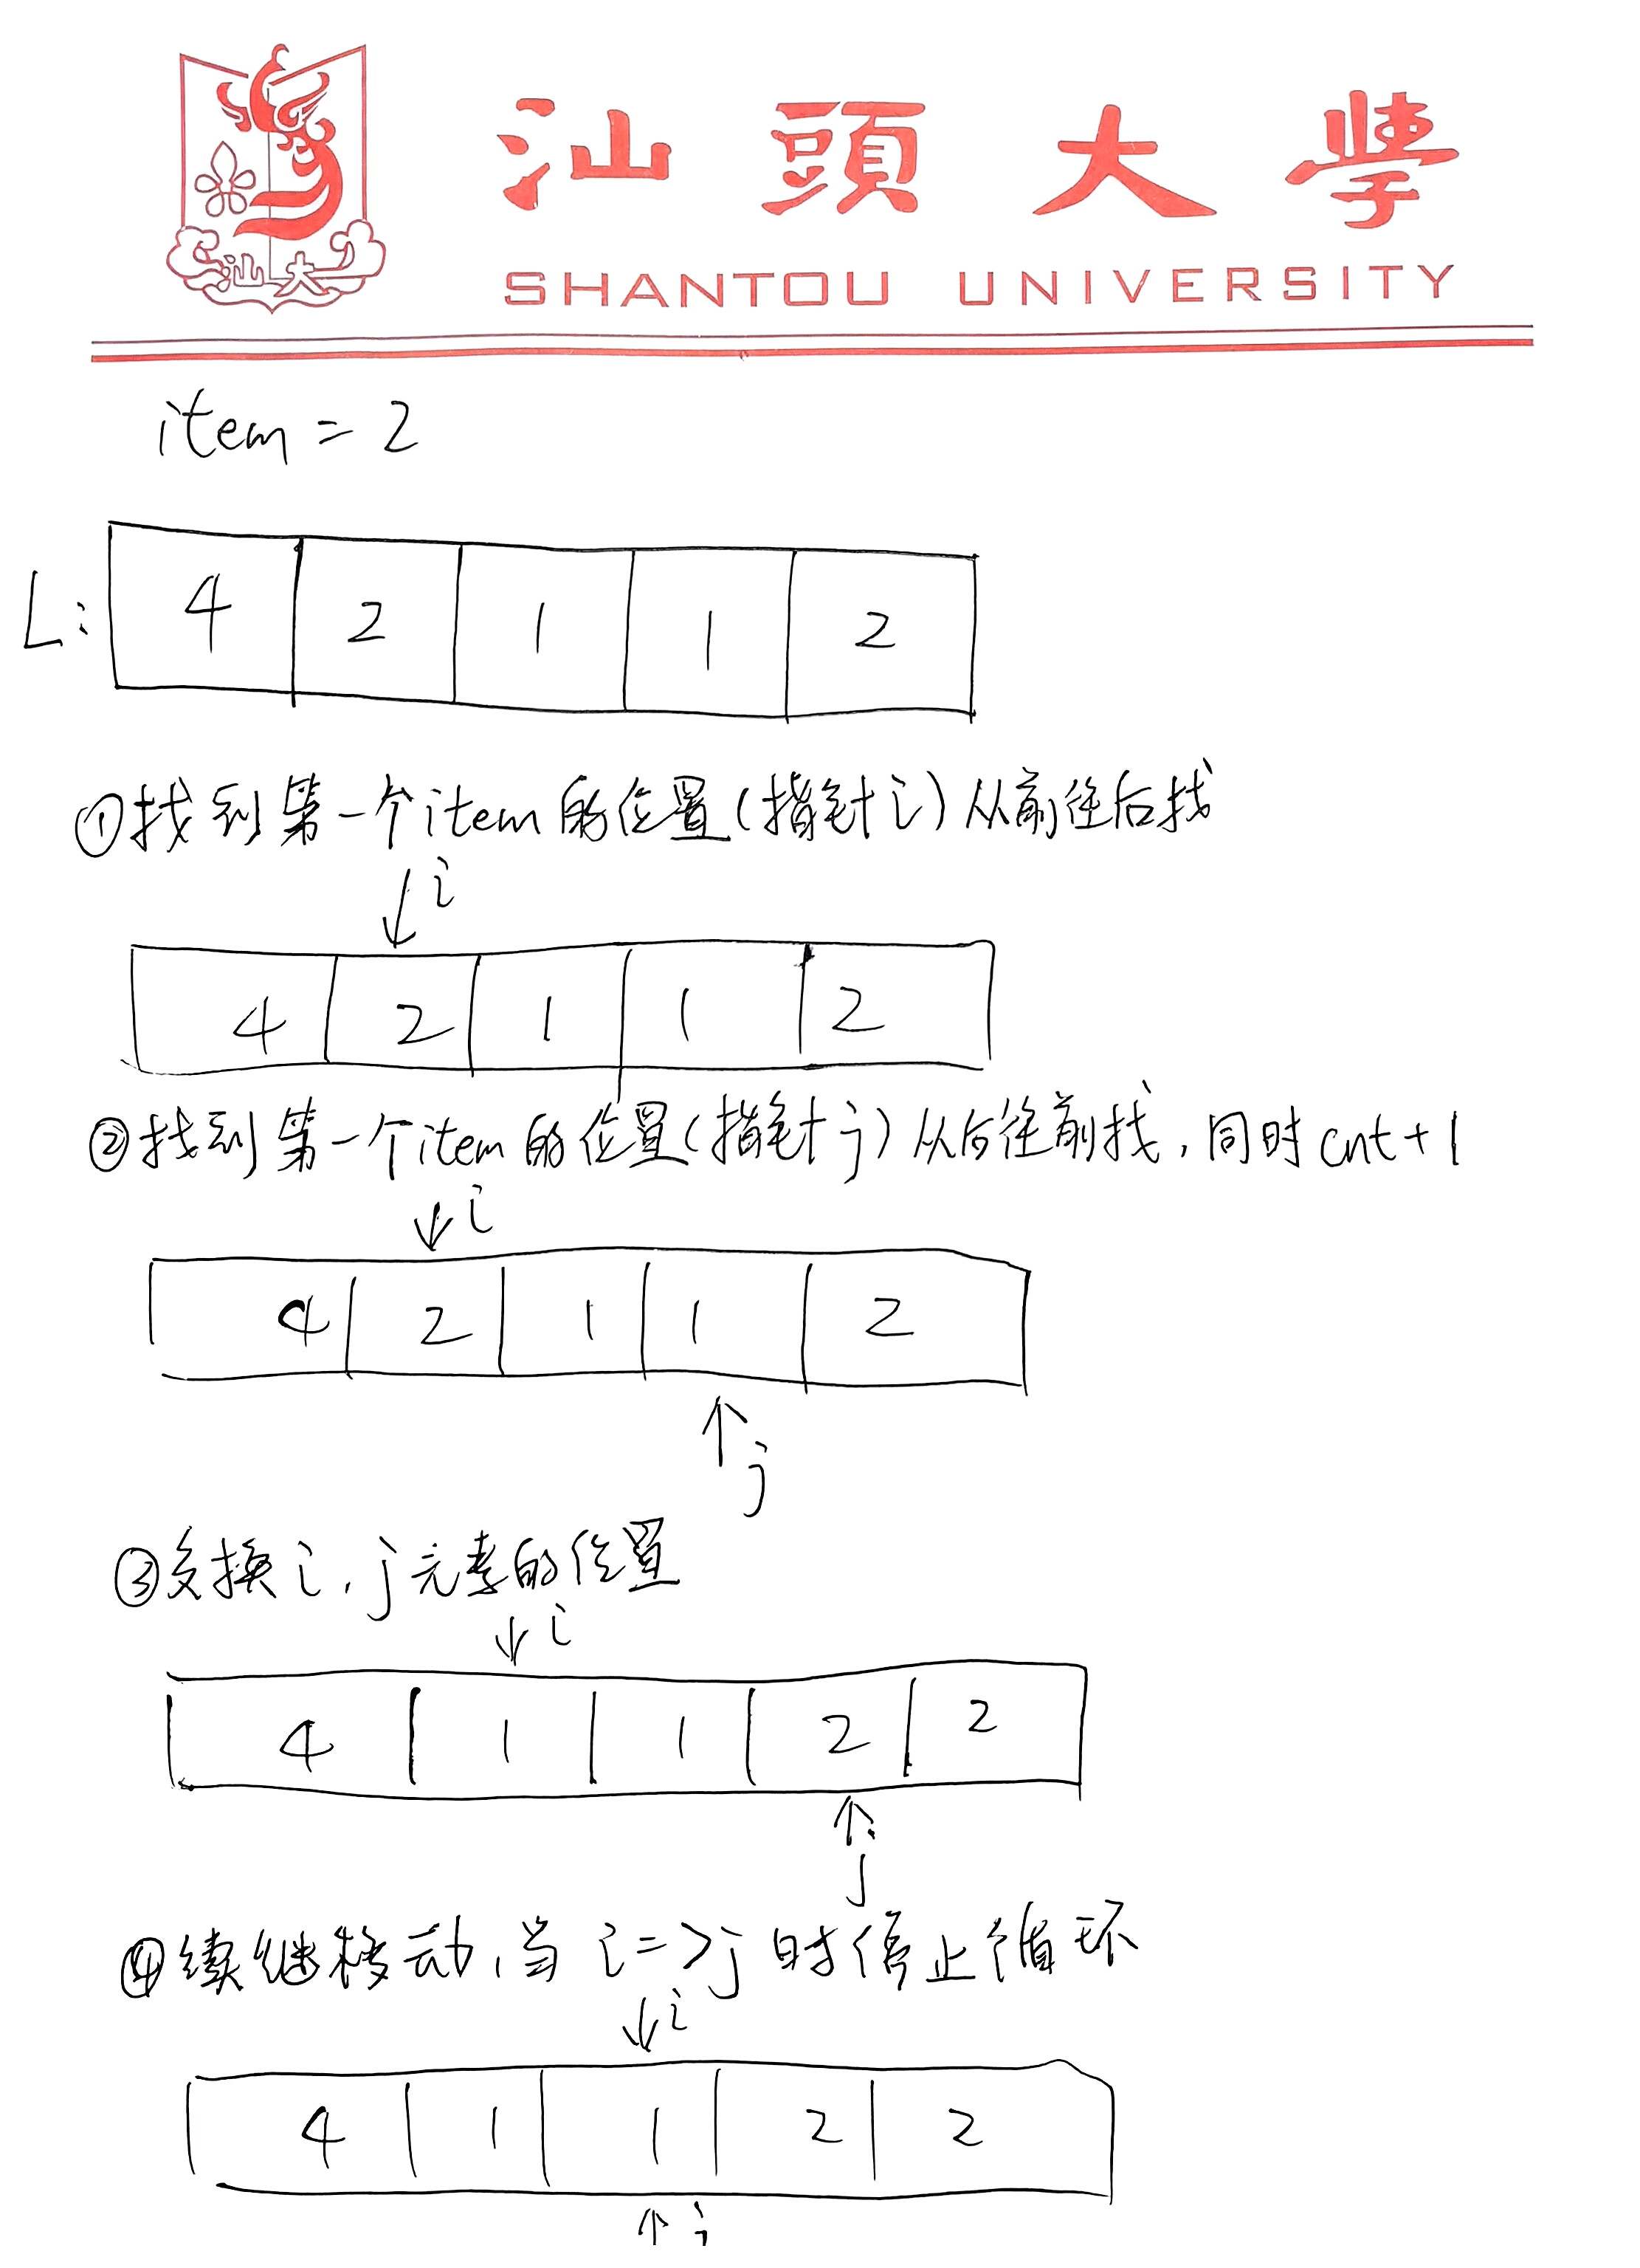 汕大
汕頭大學
SHANTOU UNIVERSITY
item = 2
L: 4 2 1 1 2
①找到第一个item的位置(指针i)从前往后找
↓i
4 2 1 1 2
②找到第一个item的位置(指针j)从后往前找，同时cnt+1
↓i
4 2 1 1 2
↑j
③交换i,j元素的位置
↓i
4 1 1 2 2
↑j
④续继移动,当i=>j时停止循环
↓i
4 1 1 2 2
↑j